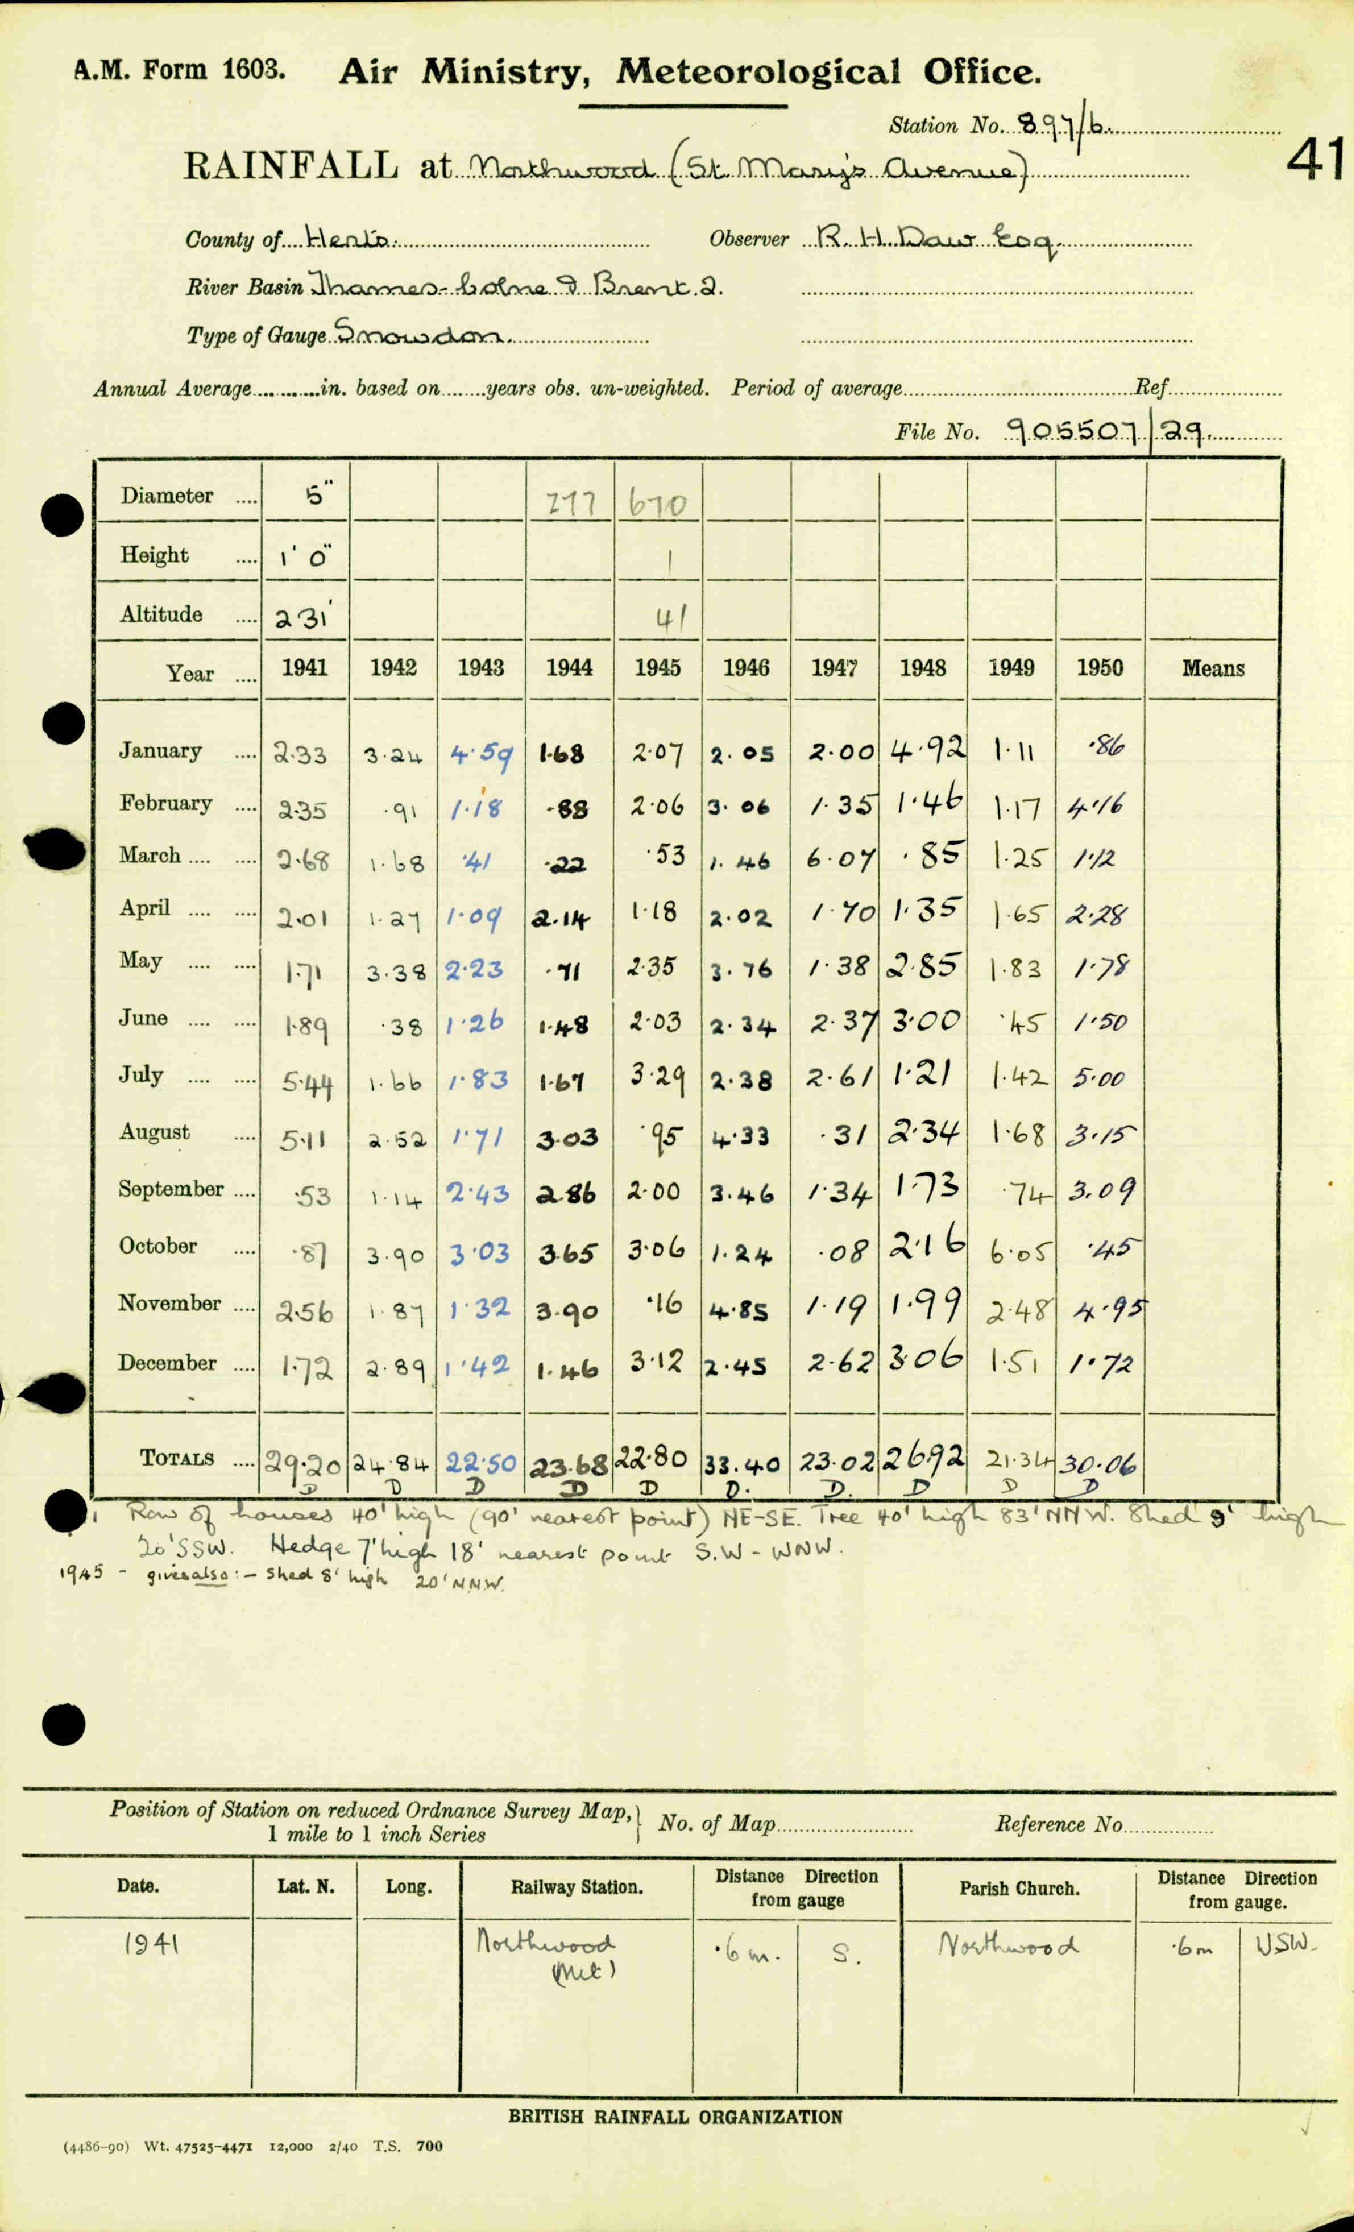 A.M. Form 1603. Air Ministry, Meteorological Office.
Station No. 897/6.
41
RAINFALL at Northwood (St. Mary's Avenue)
County of Herts. Observer R. H. Daw Esq.
River Basin Thames-Colne & Brent. 2.
Type of Gauge Snowdon.
Annual Average in. based on years obs. un-weighted. Period of average Ref.
File No. 905507/29.
Diameter .... 5" 277 670
Height .... 1' 0" 1
Altitude .... 231' 41
Year .... 1941 1942 1943 1944 1945 1946 1947 1948 1949 1950 Means
January .... 2.33 3.24 4.59 1.68 2.07 2.05 2.00 4.92 1.11 .86
February .... 2.35 .91 1.18 .88 2.06 3.06 1.35 1.46 1.17 4.16
March .... .... 2.68 1.68 .41 .22 .53 1.46 6.07 .85 1.25 1.12
April .... .... 2.01 1.27 1.09 2.14 1.18 2.02 1.70 1.35 1.65 2.28
May .... .... 1.71 3.38 2.23 .71 2.35 3.76 1.38 2.85 1.83 1.78
June .... .... 1.89 .38 1.26 1.48 2.03 2.34 2.37 3.00 .45 1.50
July .... .... 5.44 1.66 1.83 1.67 3.29 2.38 2.61 1.21 1.42 5.00
August .... 5.11 2.52 1.71 3.03 .95 4.33 .31 2.34 1.68 3.15
September .... .53 1.14 2.43 2.86 2.00 3.46 1.34 1.73 .74 3.09
October .... .87 3.90 3.03 3.65 3.06 1.24 .08 2.16 6.05 .45
November .... 2.56 1.87 1.32 3.90 .16 4.85 1.19 1.99 2.48 4.95
December .... 1.72 2.89 1.42 1.46 3.12 2.45 2.62 3.06 1.51 1.72
TOTALS .... 29.20 24.84 22.50 23.68 22.80 33.40 23.02 26.92 21.34 30.06
D D D D D D. D. D D D
Row of houses 40' high (90' nearest point) NE-SE. Tree 40' high 83' NNW. Shed 9' high
20' SSW. Hedge 7' high 18' nearest point S.W - WNW.
1945 - gives also:- Shed 8' high 20' NNW.
Position of Station on reduced Ordnance Survey Map, 1 mile to 1 inch Series No. of Map Reference No.
Date. Lat. N. Long. Railway Station. Distance Direction from gauge Parish Church. Distance Direction from gauge.
1941 Northwood (Met) .6 m. S. Northwood .6m WSW.
BRITISH RAINFALL ORGANIZATION
(4486-90) Wt. 47525-4471 12,000 2/40 T.S. 700